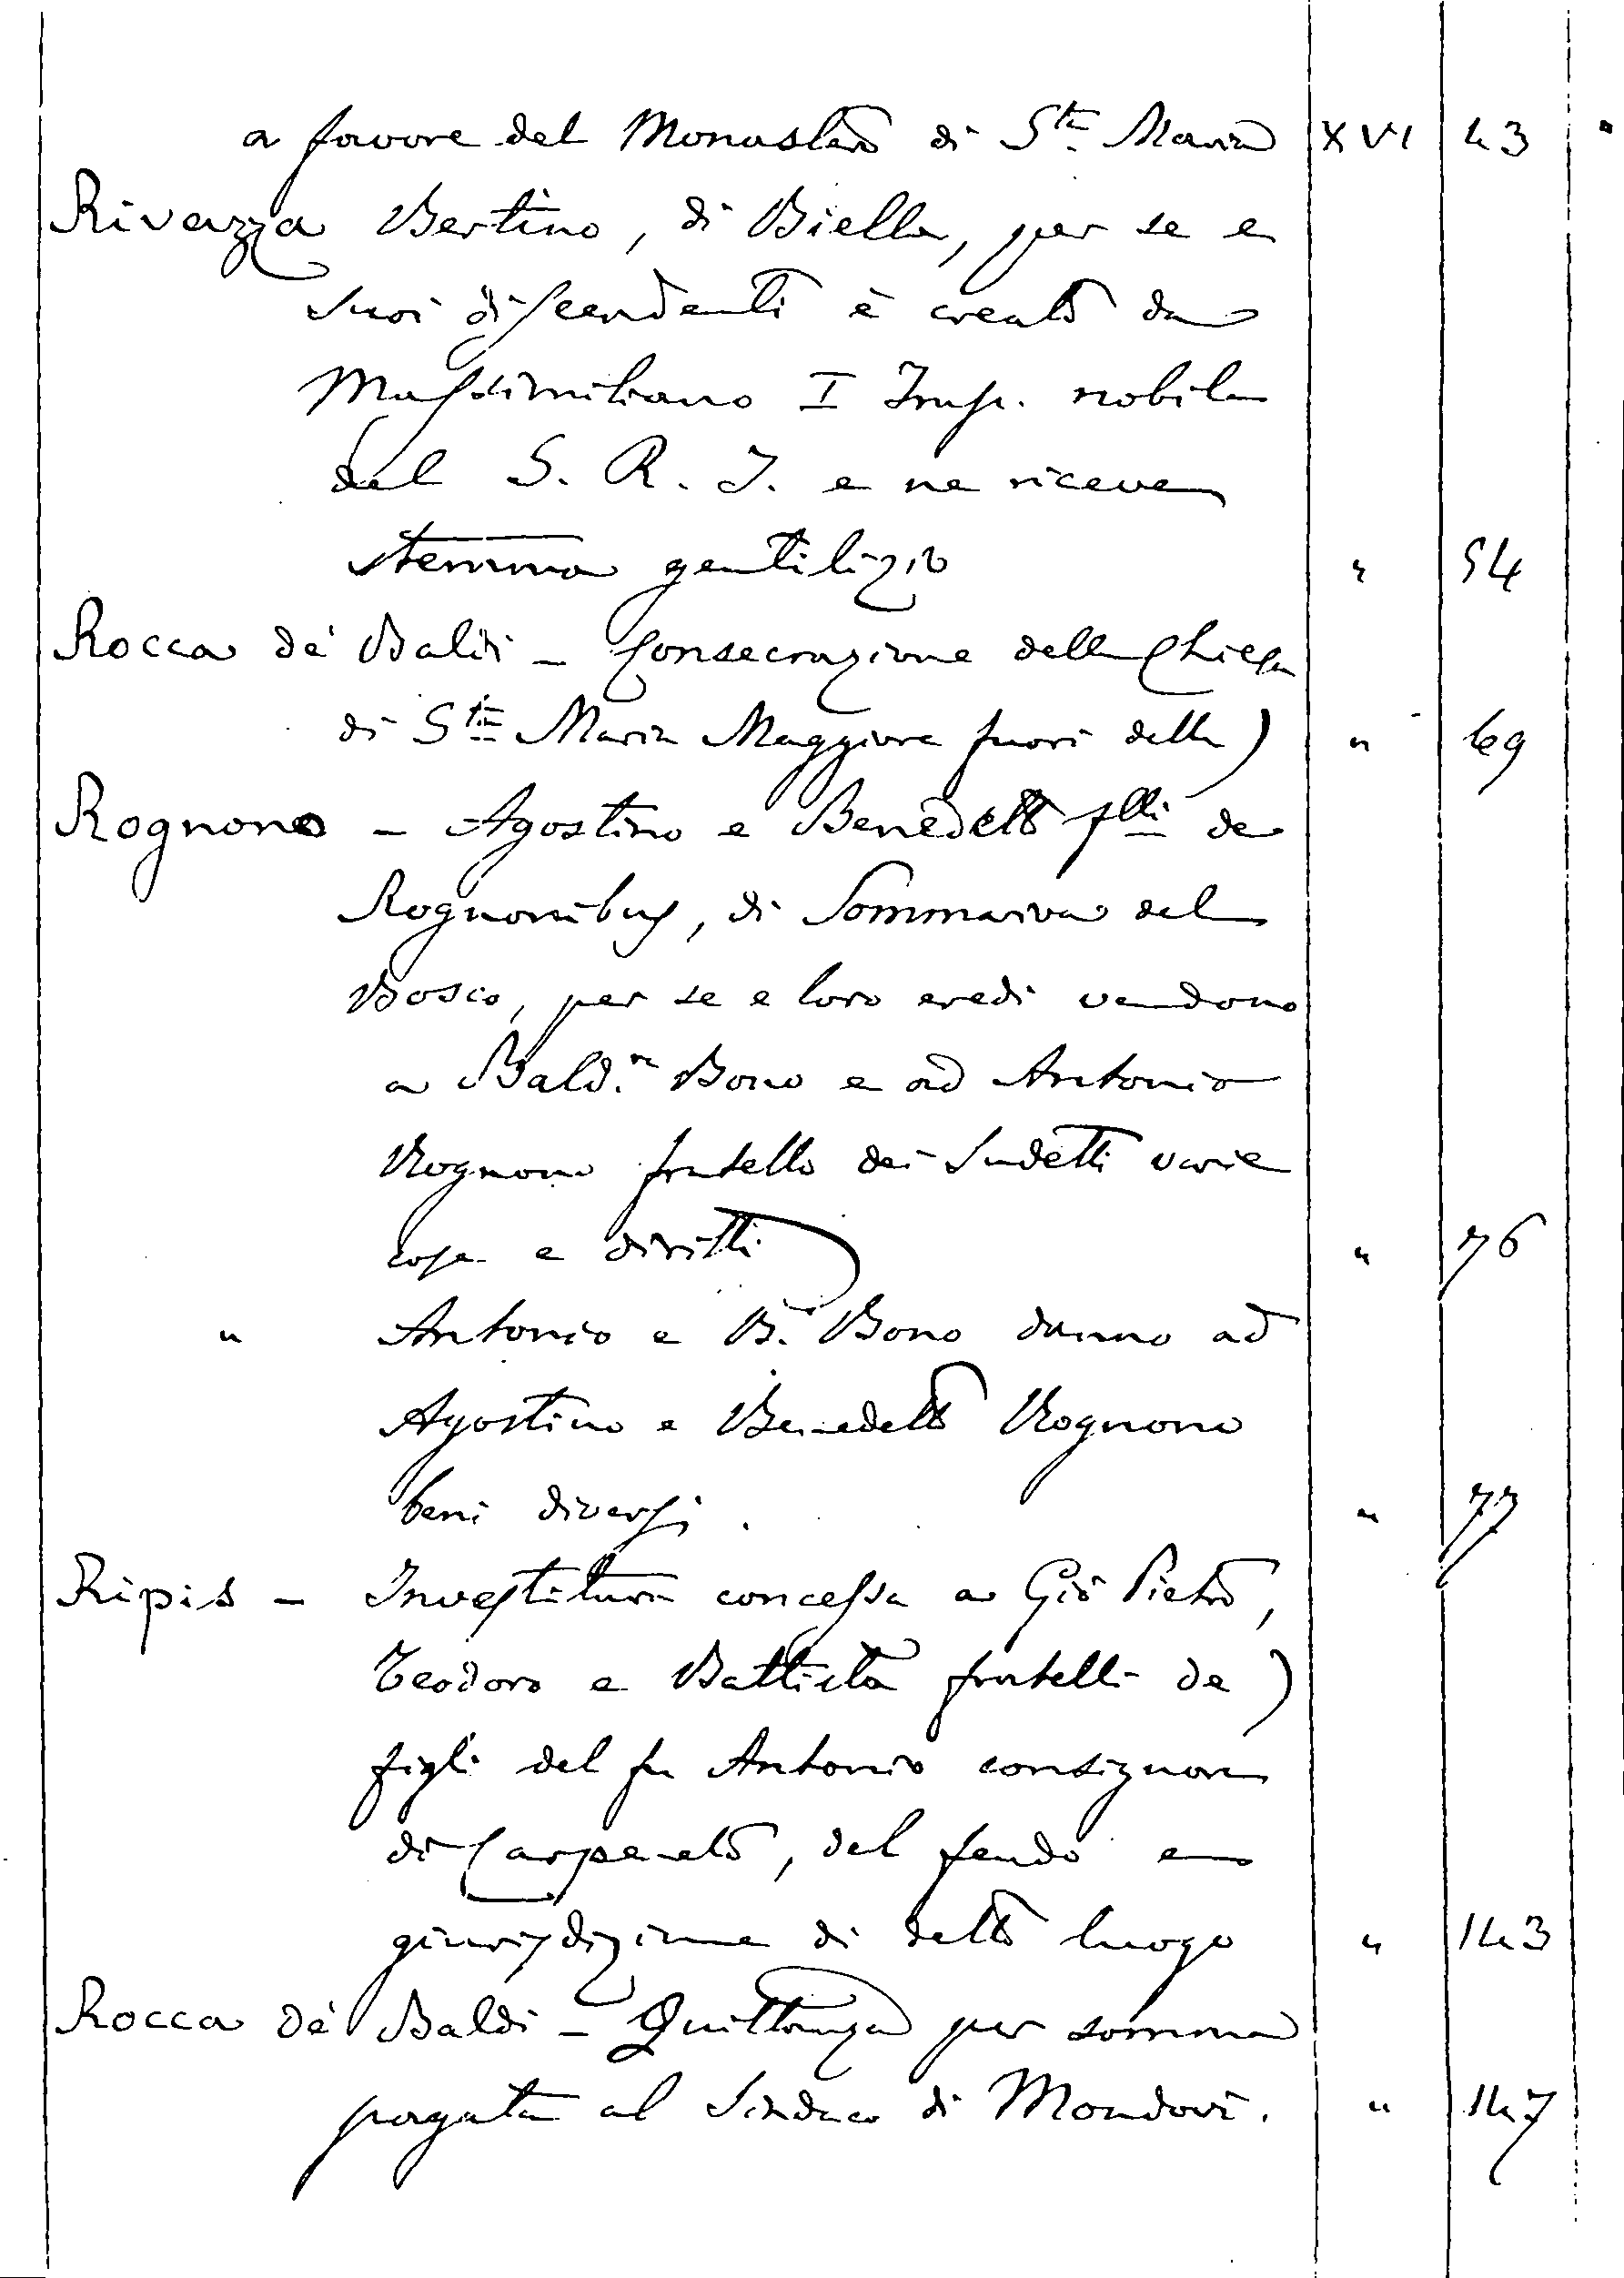 a favore del Monastero di Sta Maria XVI 43
Rivazza Bertino, di Biella, per se e
suoi discendenti è creato da
Massimiliano I Imp. nobile
del S. R. I. e ne riceve
stemma gentilizio " 54
Rocca de' Baldi - Consecrazione della Chiesa
di Sta Maria Maggiore fuori della) " 69
Rognono - Agostino e Benedetto flli de
Rognonibus, di Sommariva del
Bosco, per se e loro eredi vendono
a Bald.re Bono e ad Antonio
Rognono fratello dei sudetti varie
cose e diritti " 76
" Antonio e B.re Bono danno ad
Agostino e Benedetto Rognono
beni diversi. " 77
Ripis - Investitura concessa a Giò Pietro,
Teodoro e Battista fratelli de)
figli del fu Antonio consignori
di Carpeneto, del feudo e
giurisdizione di detto luogo " 143
Rocca de' Baldi - Quittanza per somma
pagata al Sindaco di Mondovì. " 147